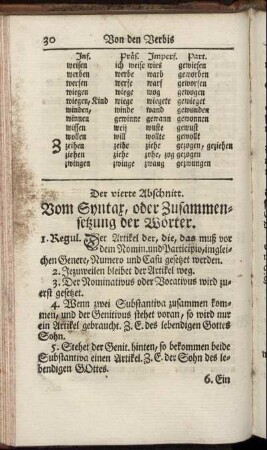 30 Von den Verbis
Inf. Präs. Imperf. Part.
weisen ich weise wies gewiesen
werben werbe warb geworben
werfen werfe warf geworfen
wiegen wiege wog gewogen
wiegen, Kind wiege wiegete gewieget
winden, winde wand gewunden
winnen gewinne gewann gewonnen
wissen weiß wuste gewust
wollen will wollte gewollt
Zeihen zeihe ziehe gezogen, geziehen
ziehen ziehe zohe, zog gezogen
zwingen zwinge zwang gezwungen
Der vierte Abschnitt.
Vom Syntax, oder Zusammen-
setzung der Wörter.
1. Regul. Der Artikel der, die, das muß vor
dem Nomin. und Participio, imglei-
chen Genere, Numero und Casu gesetzet werden.
2. Jezuweilen bleibet der Artikel weg.
3. Der Nominativus oder Vocativus wird zu-
erst gesetzet.
4. Wenn zwei Substantiva zusammen kom-
men, und der Genitivus stehet voran, so wird nur
ein Artikel gebraucht. Z. E. des lebendigen Gottes
Sohn.
5. Stehet der Genit. hinten, so bekommen beide
Substantiva einen Artikel. Z. E. der Sohn des le-
bendigen GOttes.
6. Ein